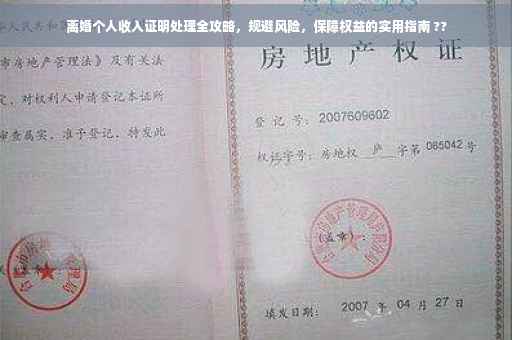 离婚个人收入证明处理全攻略，规避风险，保障权益的实用指南??
人民共和国
市房地产管理法》及有关法
定，对权利人申请登记本证所
审查属实，准予登记，特发此
房地产权证
登 记 号：2007609602
权证字号：房地权 庐 字第 065042 号
(盖章)：
填发日期： 2007 年 04 月 27 日